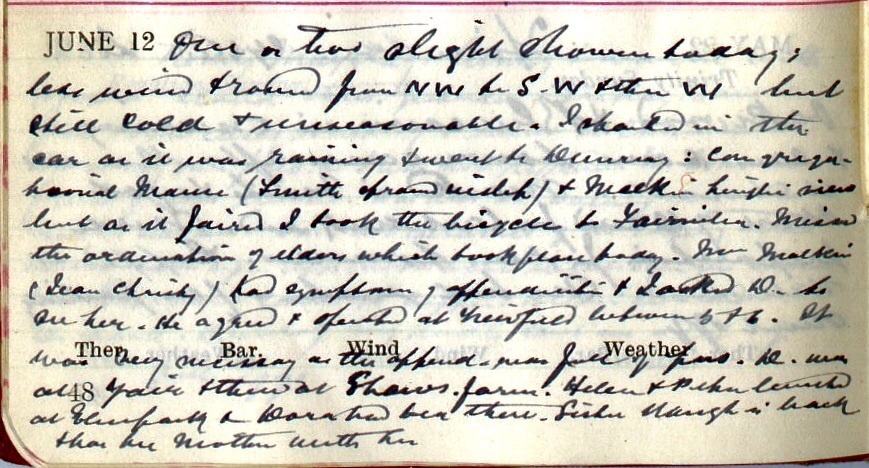 JUNE 12 One or two slight showers today;
less wind & round from NW to S-W & then W but
still cold & unseasonable. I started in the
car as it was raining & went to : Congrega-
tional Manse (Smith ) & Mackin
but as it faired I took the bicycle to . Missed
the ordination of elders which took place today. Mrs Mackin
(Jean Christy) had symptoms of appendicitis & I asked D. to
see her. He agreed & operated at between 5 & 6. It
Ther. Bar. Wind Weather
was very necessary as the append. was full of pus. D. was
48 at & then at Shaws farm. Helen & lunched
at & had been there. Sister is back
& has her Mother with her